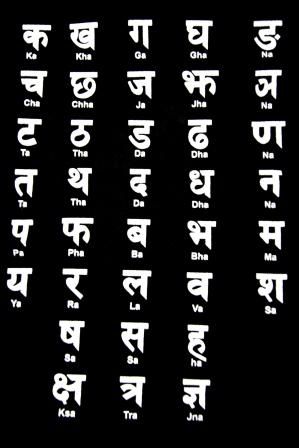 क ख ग घ ङ
Ka Kha Ga Gha Na
च छ ज झ ञ
Cha Chha Ja Jha Na
ट ठ ड ढ ण
Ta Tha Da Dha Na
त थ द ध न
Ta Tha Da Dha Na
प फ ब भ म
Pa Pha Ba Bha Ma
य र ल व श
Ya Ra La Va Sa
ष स ह
Sa Sa ha
क्ष त्र ज्ञ
Ksa Tra Jna